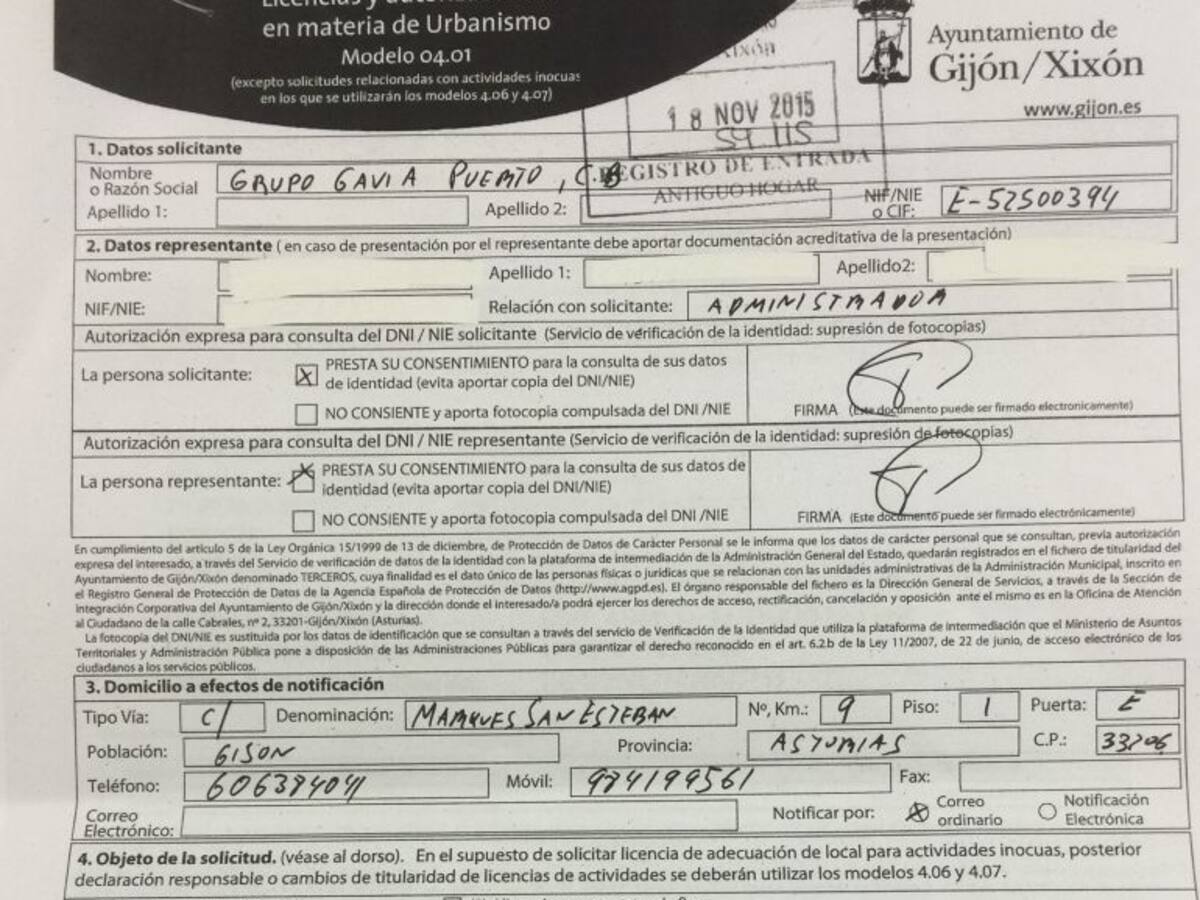 en materia de Urbanismo
Modelo 04.01
(excepto solicitudes relacionadas con actividades inocuas
en los que se utilizarán los modelos 4.06 y 4.07)
Ayuntamiento de
Gijón/Xixón
www.gijon.es
18 NOV 2015
REGISTRO DE ENTRADA
ANTIGUO HOGAR
1. Datos solicitante
Nombre
o Razón Social GRUPO GAVIA PUERTO, C.B
Apellido 1: Apellido 2: NIF/NIE
o CIF: E-52500394
2. Datos representante ( en caso de presentación por el representante debe aportar documentación acreditativa de la presentación)
Nombre: Apellido 1: Apellido2:
NIF/NIE: Relación con solicitante: ADMINISTRADOR
Autorización expresa para consulta del DNI / NIE solicitante (Servicio de verificación de la identidad: supresión de fotocopias)
La persona solicitante: X PRESTA SU CONSENTIMIENTO para la consulta de sus datos
de identidad (evita aportar copia del DNI/NIE)
NO CONSIENTE y aporta fotocopia compulsada del DNI /NIE FIRMA (Este documento puede ser firmado electronicamente)
Autorización expresa para consulta del DNI / NIE representante (Servicio de verificación de la identidad: supresión de fotocopias)
La persona representante: X PRESTA SU CONSENTIMIENTO para la consulta de sus datos de
identidad (evita aportar copia del DNI/NIE)
NO CONSIENTE y aporta fotocopia compulsada del DNI /NIE FIRMA (Este documento puede ser firmado electrónicamente)
En cumplimiento del artículo 5 de la Ley Orgánica 15/1999 de 13 de diciembre, de Protección de Datos de Carácter Personal se le informa que los datos de carácter personal que se consultan, previa autorización
expresa del interesado, a través del Servicio de verificación de datos de la identidad con la plataforma de intermediación de la Administración General del Estado, quedarán registrados en el fichero de titularidad del
Ayuntamiento de Gijón/Xixón denominado TERCEROS, cuya finalidad es el dato único de las personas físicas o jurídicas que se relacionan con las unidades administrativas de la Administración Municipal, inscrito en
el Registro General de Protección de Datos de la Agencia Española de Protección de Datos (http://www.agpd.es). El órgano responsable del fichero es la Dirección General de Servicios, a través de la Sección de
Integración Corporativa del Ayuntamiento de Gijón/Xixón y la dirección donde el interesado/a podrá ejercer los derechos de acceso, rectificación, cancelación y oposición ante el mismo es en la Oficina de Atención
al Ciudadano de la calle Cabrales, nº 2, 33201-Gijón/Xixón (Asturias).
La fotocopia del DNI/NIE es sustituida por los datos de identificación que se consultan a través del servicio de Verificación de la Identidad que utiliza la plataforma de intermediación que el Ministerio de Asuntos
Territoriales y Administración Pública pone a disposición de las Administraciones Públicas para garantizar el derecho reconocido en el art. 6.2.b de la Ley 11/2007, de 22 de junio, de acceso electrónico de los
ciudadanos a los servicios públicos.
3. Domicilio a efectos de notificación
Tipo Vía: C/ Denominación: MARQUES SAN ESTEBAN Nº, Km.: 9 Piso: 1 Puerta: E
Población: GIJON Provincia: ASTURIAS C.P.: 33206
Teléfono: 606384041 Móvil: 984199561 Fax:
Correo
Electrónico: Notificar por: X Correo
ordinario Notificación
Electrónica
4. Objeto de la solicitud. (véase al dorso). En el supuesto de solicitar licencia de adecuación de local para actividades inocuas, posterior
declaración responsable o cambios de titularidad de licencias de actividades se deberán utilizar los modelos 4.06 y 4.07.